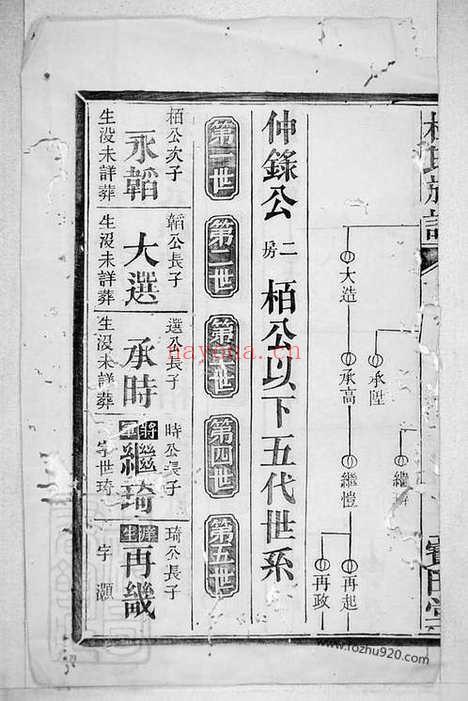 氏族譜
承陞
大造
承高
繼愷
再起
再政
仲錄公二房栢公以下五代世系
第一世
第二世
第三世
第四世
第五世
栢公次子
永韜
生没未詳葬
韜公長子
大選
生没未詳葬
選公長子
承時
生没未詳葬
時公長子
繼琦
字世琦
琦公長子
庠生
再畿
字灝
nayona.cn
www.rozhu920.com